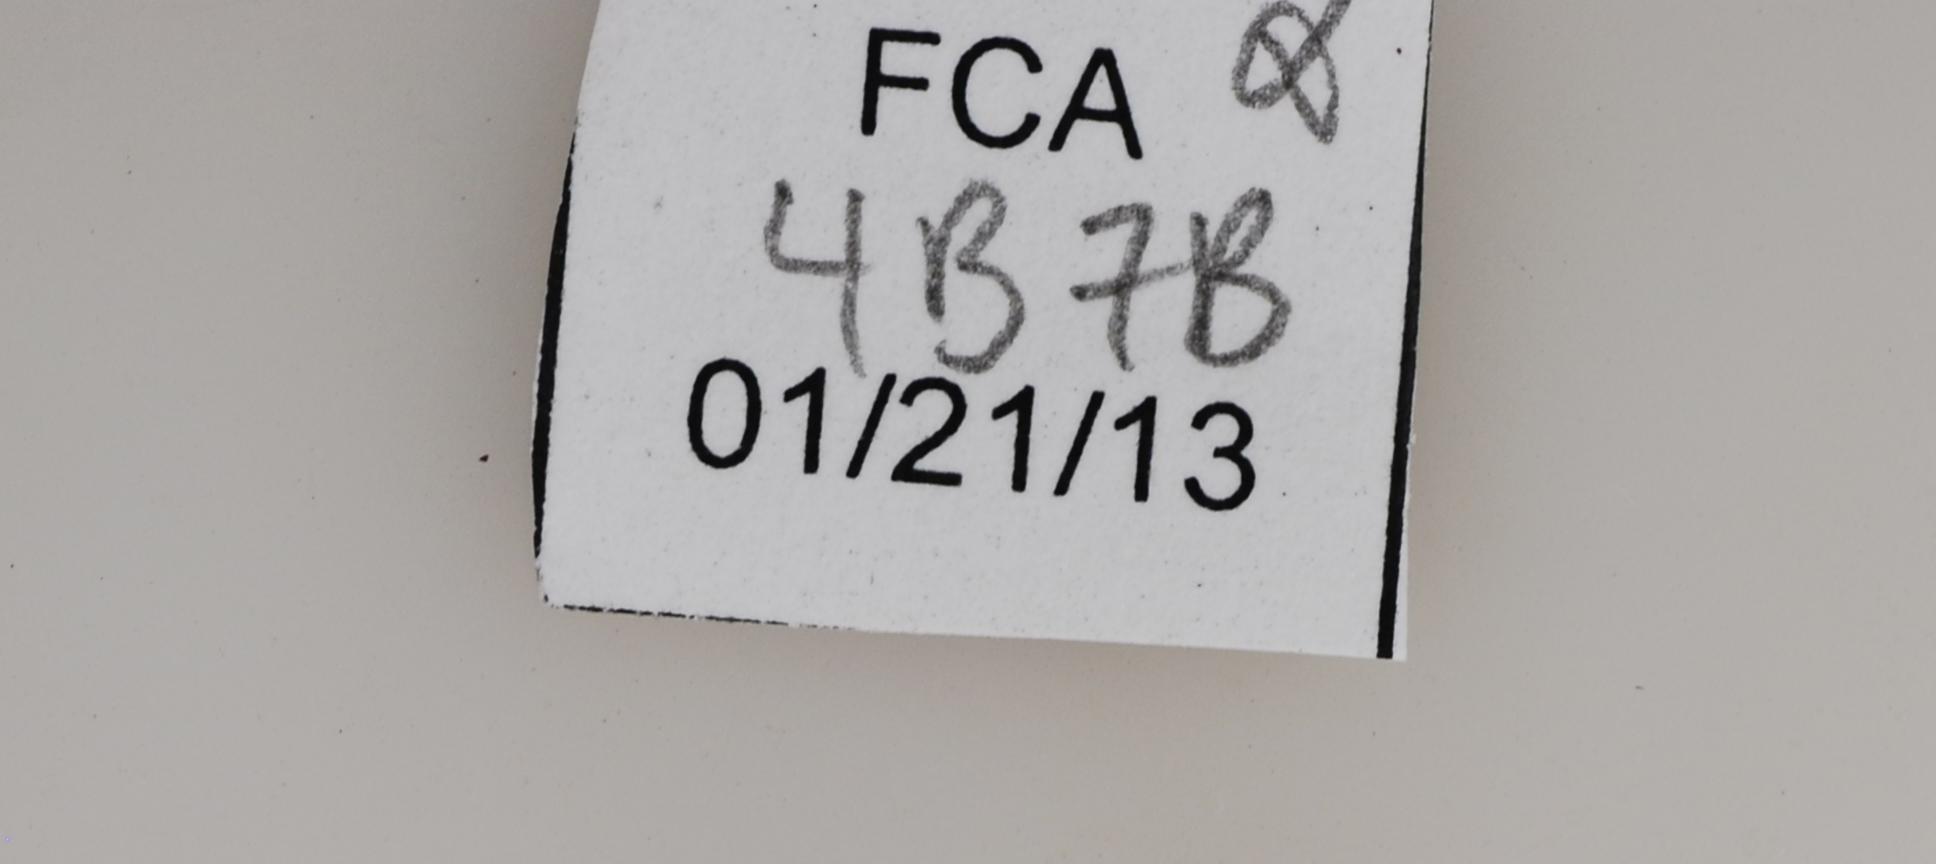 FCA
4B7B
01/21/13